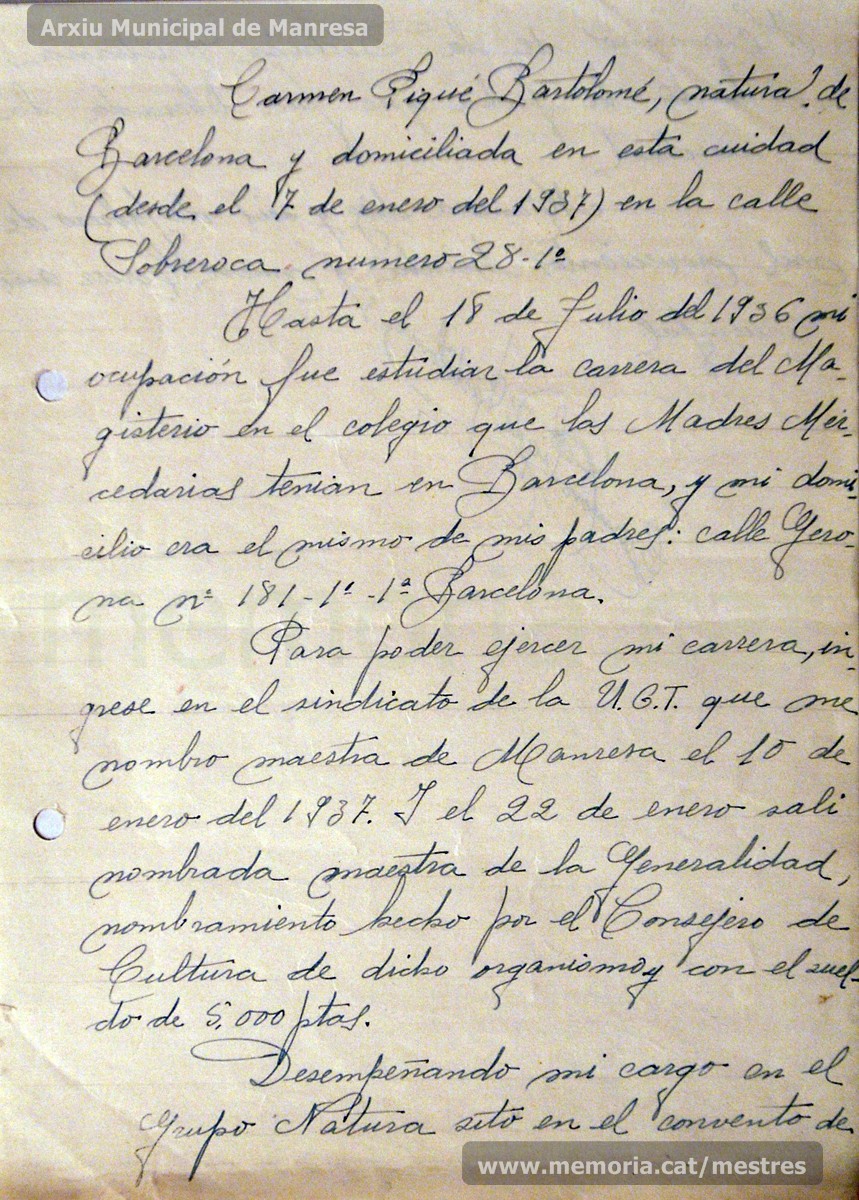 Arxiu Municipal de Manresa
Carmen Piqué Bartolomé, natural de
Barcelona y domiciliada en esta cuidad
(desde el 7 de enero del 1937) en la calle
Sobreroca numero 28-1º
Hasta el 18 de Julio del 1936 mi
ocupación fue estudiar la carrera del Ma-
gisterio en el colegio que las Madres Mer-
cedarias tenian en Barcelona, y mi domi-
cilio era el mismo de mis padres: calle Gero-
na nº 181-1º-1ª Barcelona.
Para poder ejercer mi carrera, in-
grese en el sindicato de la U.G.T. que me
nombro maestra de Manresa el 10 de
enero del 1937. I el 22 de enero sali
nombrada maestra de la Generalidad,
nombramiento hecho por el Consejero de
Cultura de dicho organismo y con el suel-
do de 5.000 ptas.
Desempeñando mi cargo en el
Grupo Natura sito en el convento de
www.memoria.cat/mestres